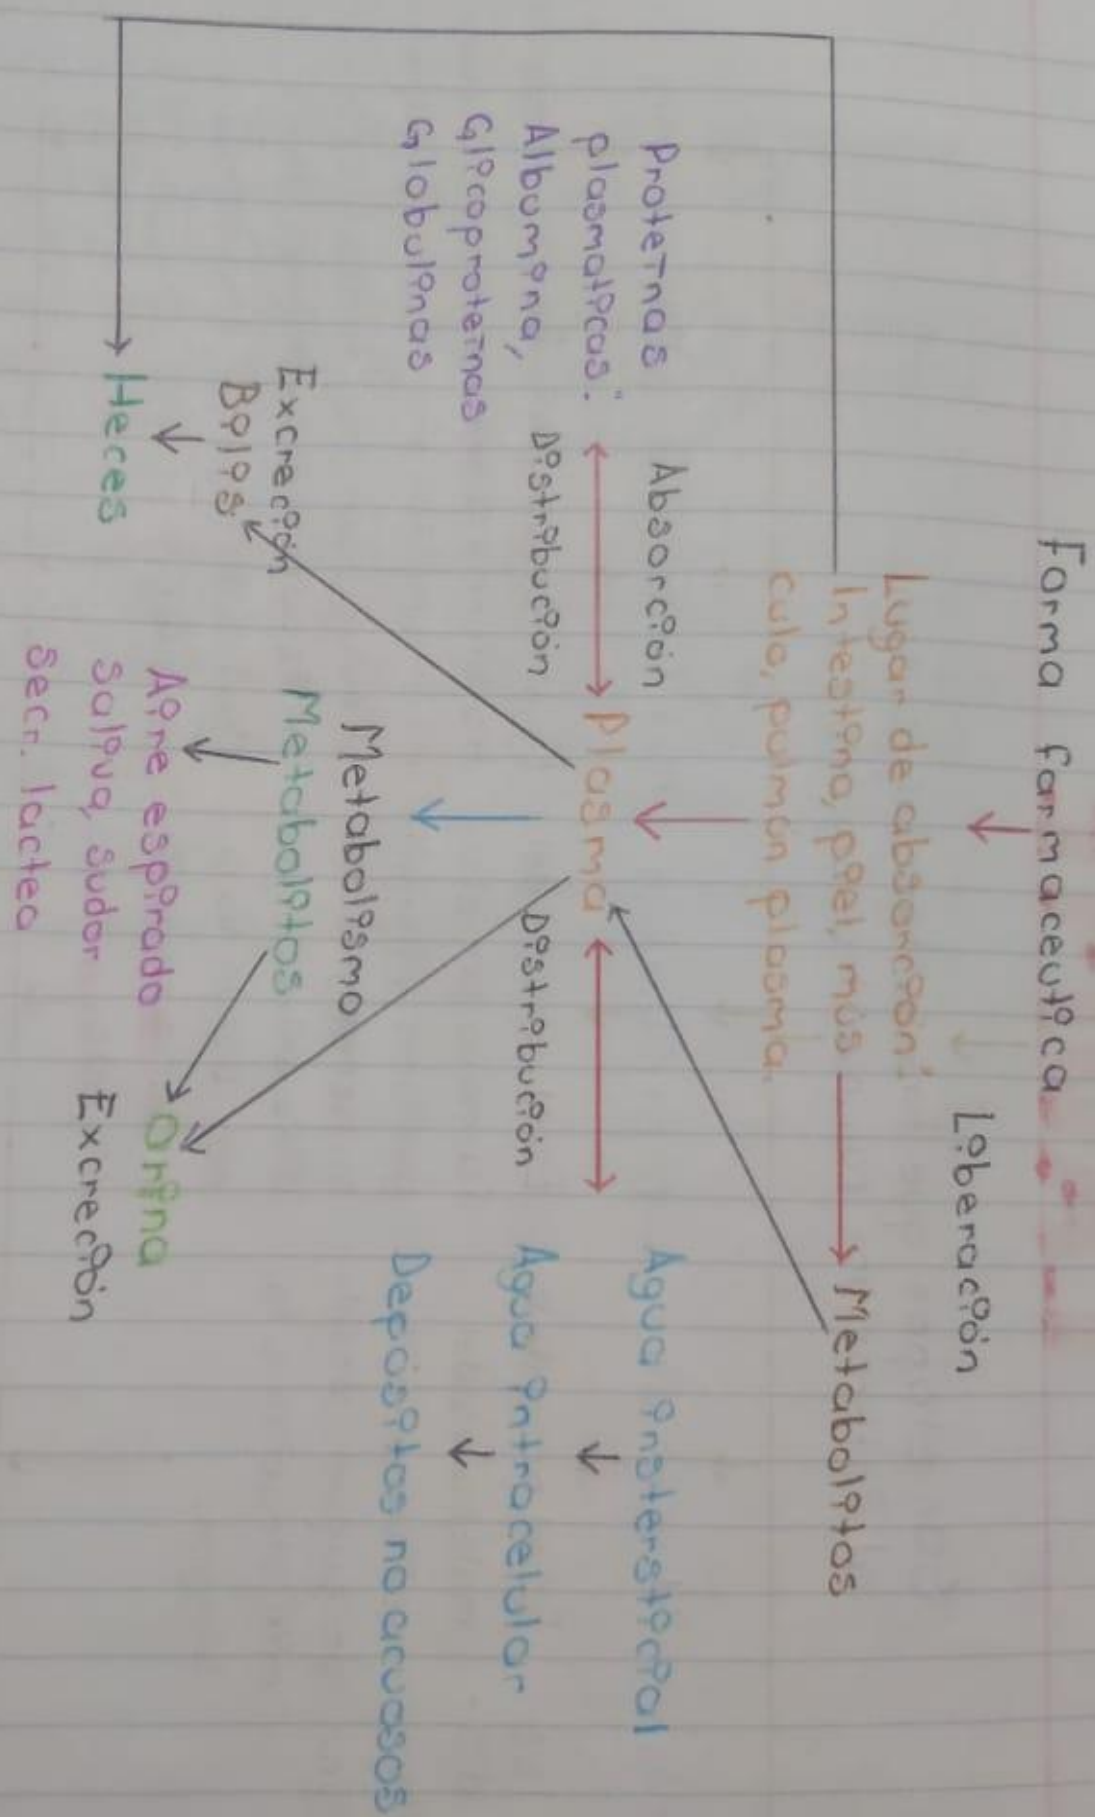 Forma farmaceutica
Liberación
Lugar de absorción:
Intestino, piel, mus
culo, pulmón plasma.
Metabolitos
Absorción
Proteínas
plasmaticas:
Albumina,
Glicoproteínas
Globulinas
Distribución
Plasma
Distribución
Agua instersticial
Agua intracelular
Depósitos no acuosos
Excreción
Bilis
Heces
Metabolismo
Metabolitos
Aire espirado
Saliva, sudor
Secr. lacteo
Orina
Excreción